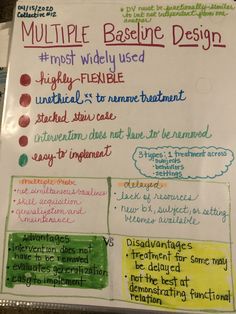 04/15/2020
Collective #12
* DV must be functionally similar
to but not independent from one
another
MULTIPLE Baseline Design
#most widely used
highly-FLEXIBLE
unethical to remove treatment
stacked stair case
intervention does not have to be removed
easy to implement
3 types: 1 treatment across
subjects
behaviors
settings
multiple probe
not simultaneous baselines
skill acquisition
generalization and
maintenance
delayed
lack of resources
new bx, subject, or setting
becomes available
VS
advantages
intervention does not
have to be removed
evaluates generalization
easy to implement
Disadvantages
treatment for some may
be delayed
not the best at
demonstrating functional
relation